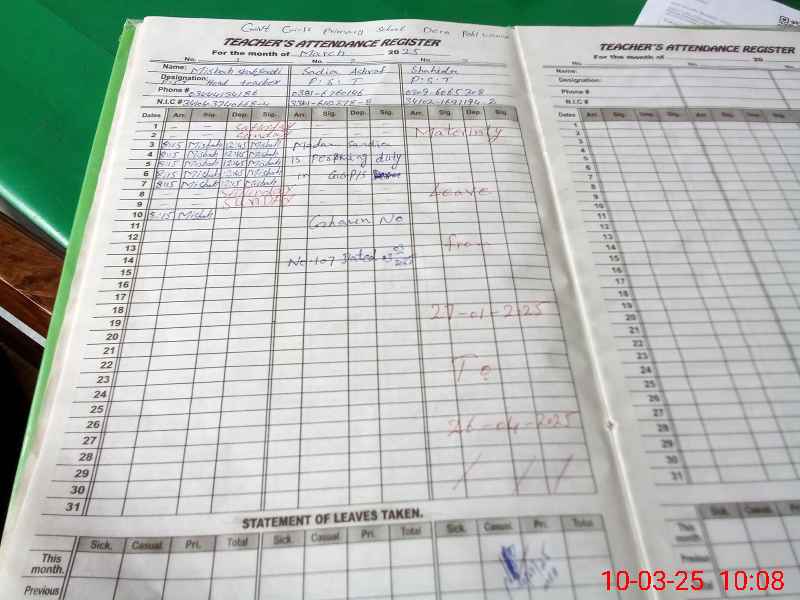 Govt Girls Primary School Dera
TEACHER'S ATTENDANCE REGISTER
For the month of March 2025
No. 1 No. 2 No. 3
Name: Misbah Sadia Ashraf Shahida
Designation: Head teacher P.S.T P.S.T
Phone #
N.I.C #
Dates Arr. Sig. Dep. Sig. Arr. Sig. Dep. Sig. Arr. Sig. Dep. Sig.
1 — — Saturday
2 — — Sunday Maternity
3 8:15 Misbah 12:45 Misbah Madam Sandia
4 8:15 Misbah 12:45 Misbah
5 8:15 Misbah 12:45 Misbah is duty
6 8:15 Misbah 12:45 Misbah in
7 8:15 Misbah 12:45 Misbah
8 — — Saturday Leave
9 — — SUNDAY
10 8:15 Misbah
11 No
12
13 from
14 No-107 Dated
15
16
17
18 27-01-2025
19
20
21
22 To
23
24
25
26 26-04-2025
27
28
29
30
31
STATEMENT OF LEAVES TAKEN.
Sick. Casual. Pri. Total Sick. Casual. Pri. Total Sick. Casual. Pri. Total
This month.
Previous
TEACHER'S ATTENDANCE REGISTER
For the month of 20
No. No.
Name:
Designation:
Phone #
N.I.C #
Dates Arr. Sig. Dep. Sig. Arr. Sig.
1
2
3
4
5
6
7
8
9
10
11
12
13
14
15
16
17
18
19
20
21
22
23
24
25
26
27
28
29
30
31
Sick. Casual. Pri. Total
This month.
Previous
10-03-25 10:08